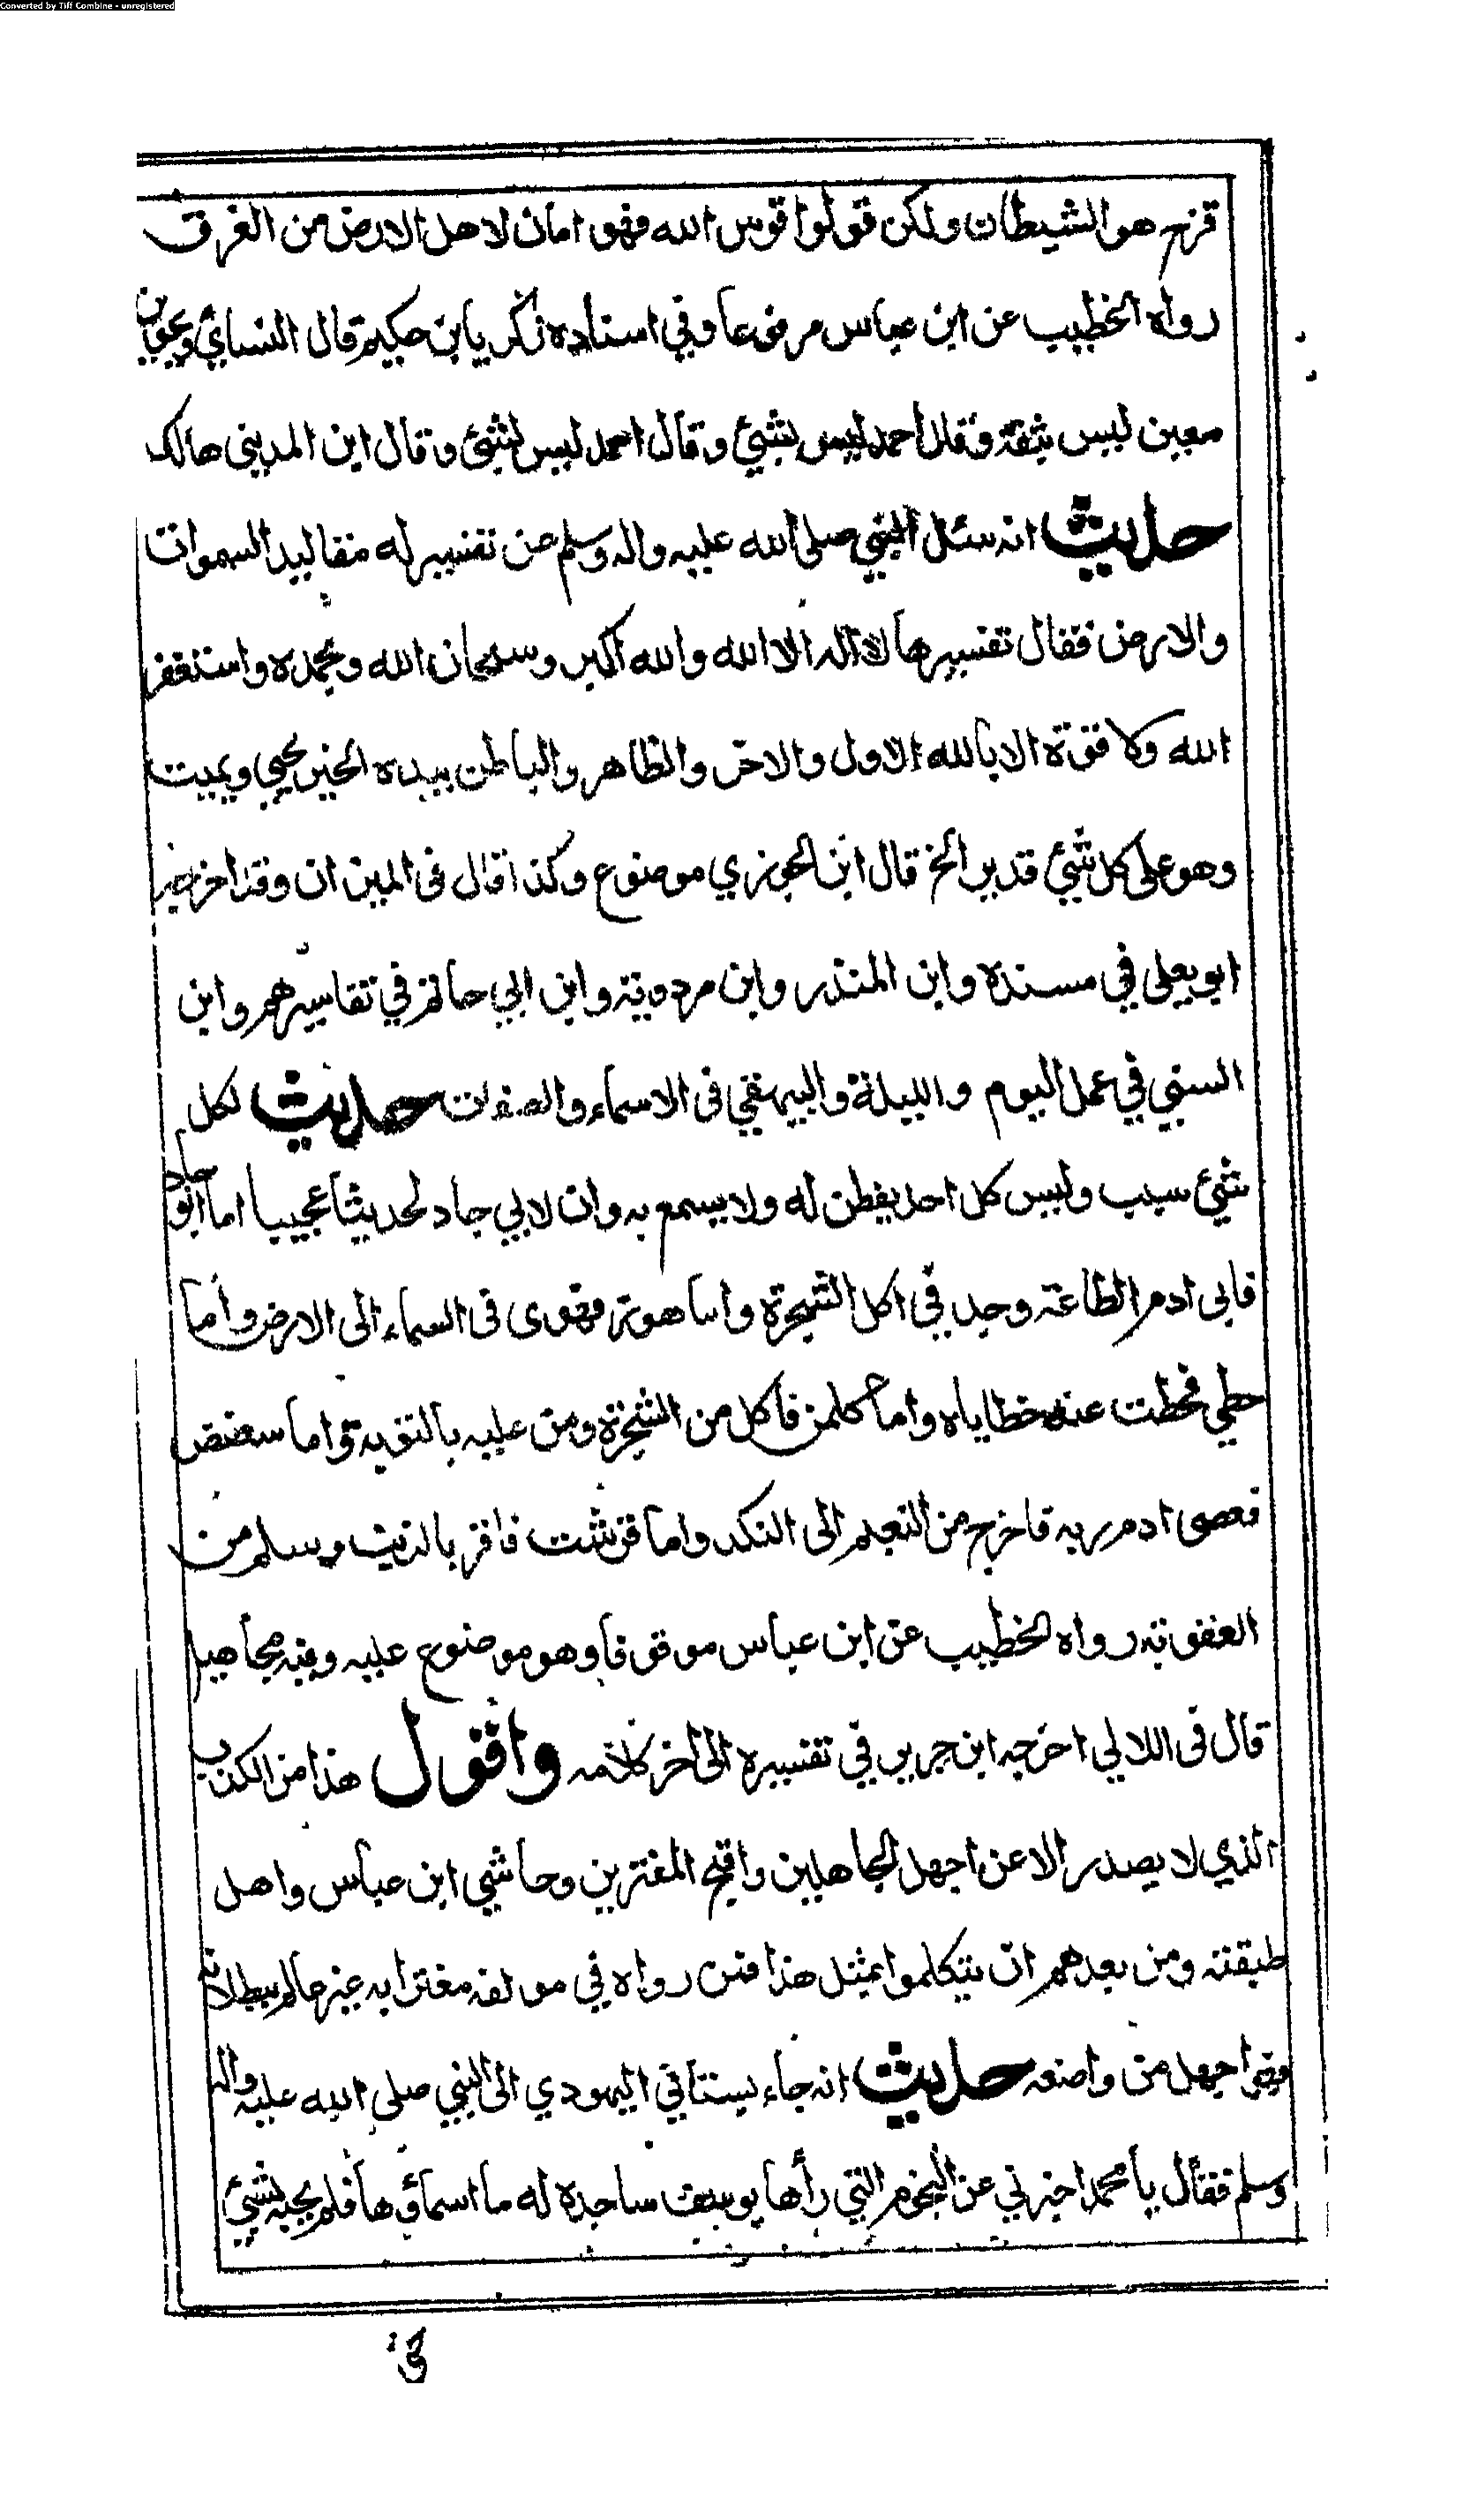 Converted by Tiff Combine - unregistered
قزح هو الشيطان ولكن قولوا قوس الله فهو امان لاهل الارض من الغرق
رواه الخطيب عن ابن عباس مرفوعا وفي اسناده زكريا بن حكيم قال النسائي ويحيى بن
معين ليس بثقة وقال احمد ليس بشئ وقال احمد ليس بشئ وقال ابن المديني هالك
حديث انه سئل النبي صلى الله عليه واله وسلم عن تفسير له مقاليد السموات
والارض فقال تفسيرها لا اله الا الله والله اكبر وسبحان الله وبحمده واستغفر
الله ولا قوة الا بالله الاول والاخر والظاهر والباطن بيده الخير يحيي ويميت
وهو على كل شئ قدير الخ قال ابن الجوزي موضوع وكذا قال في الميزان وقد اخرجه
ابو يعلى في مسنده وابن المنذر وابن مردويه وابن ابي حاتم في تفاسيرهم وابن
السني في عمل اليوم والليلة والبيهقي في الاسماء والصفات حديث لكل
شئ سبب وليس كل احد يفطن له ولا يسمع به وان لابي جاد لحديثا عجيبا اما ابو جاد
فابى ادم الطاعة وجد في اكل الشجرة واما هوز فهوى في السماء الى الارض واما
حطي فحطت عنه خطاياه واما كلمن فاكل من الشجرة ومن عليه بالتوبة واما سعفص
فعصى ادم ربه فاخرج من النعيم الى النكد واما قرشت فاقر بالذنب وسلم من
العقوبة رواه الخطيب عن ابن عباس موقوفا وهو موضوع عليه وفيه مجاهيل
قال في اللالي اخرجه ابن جرير في تفسيره الى اخر كلامه واقول هذا من الكذب
الذي لا يصدر الا عن اجهل الجاهلين واقبح المفترين وحاشى ابن عباس واهل
طبقته ومن بعدهم ان يتكلموا بمثل هذا فمن رواه في مولفه مغترا به غير عالم ببطلانه
فهو اجهل من واضعه حديث انه جاء بستاني اليهودي الى النبي صلى الله عليه واله
وسلم فقال يا محمد اخبرني عن النجوم التي رأها يوسف ساجدة له ما اسماؤها فلم يجبه بشئ